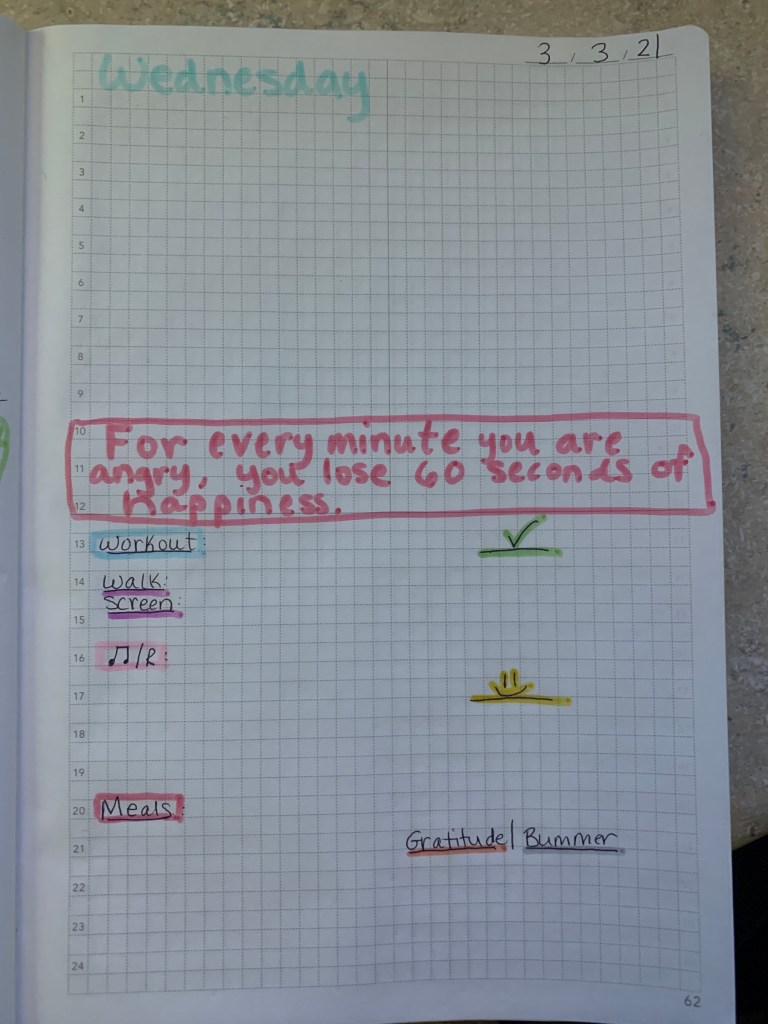 3, 3, 21
Wednesday
1
2
3
4
5
6
7
8
9
10
For every minute you are
11
angry, you lose 60 seconds of
12
happiness.
13
Workout:
✓
14
Walk:
Screen:
15
16
♫/R:
17
18
19
20
Meals:
21
Gratitude | Bummer
22
23
24
62